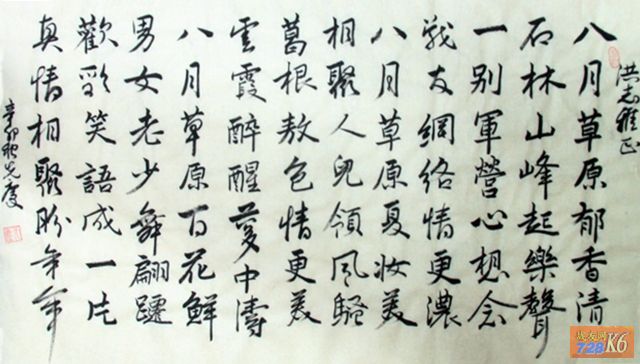 洪志雅正
八月草原郁香清
石林山峰起樂聲
一别軍營心想念
战友網絡情更濃
八月草原夏妆美
相聚人兒領风騷
葛根敖包情更美
雲霞醉醒夢中濤
八月草原百花鮮
男女老少舞翩躚
歡歌笑語成一片
真情相聚盼年年
辛卯秋
战友网
728 K6